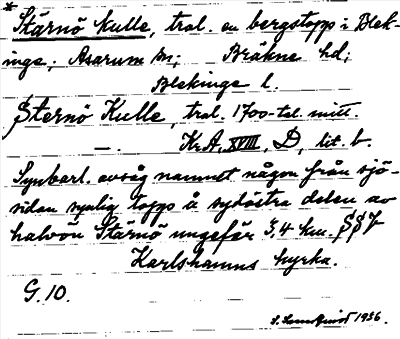 *Stärnö kulle, trol. en bergstopp i Blek-
inge; Asarum sn; Bräkne hd;
Blekinge l.
Sternö Kulle, trol. 1700-tal. mitt.
–. Kr.A, XVIII, D, lit. b.
Synbarl. avsåg namnet någon från sjö-
sidan synlig topp å sydöstra delen av
halvön Stärnö ungefär 3,4 km. SSV
Karlshamns kyrka.
G. 10.
1956.